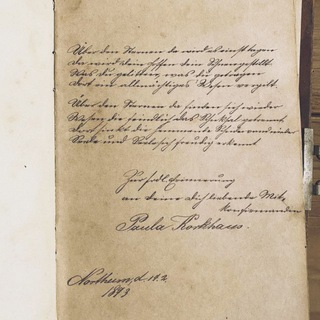 Über den Sternen da wird es einst tagen
Da wird dein Hoffen dein Sehnen gestillt
Was du gelitten, was du getragen
Dort ein allmächtiges Wesen vergilt.
Über den Sternen da finden sich wieder
Wesen die feindlich das Schicksal getrennt
Dort sinkt die hemmende Binde
Seele und freudig erkennt
Zur frdl. Erinnerung
an deine dich liebende Mit-
konfirmandin
Paula Korkhaus.
Northeim, d. 14.2.
1893